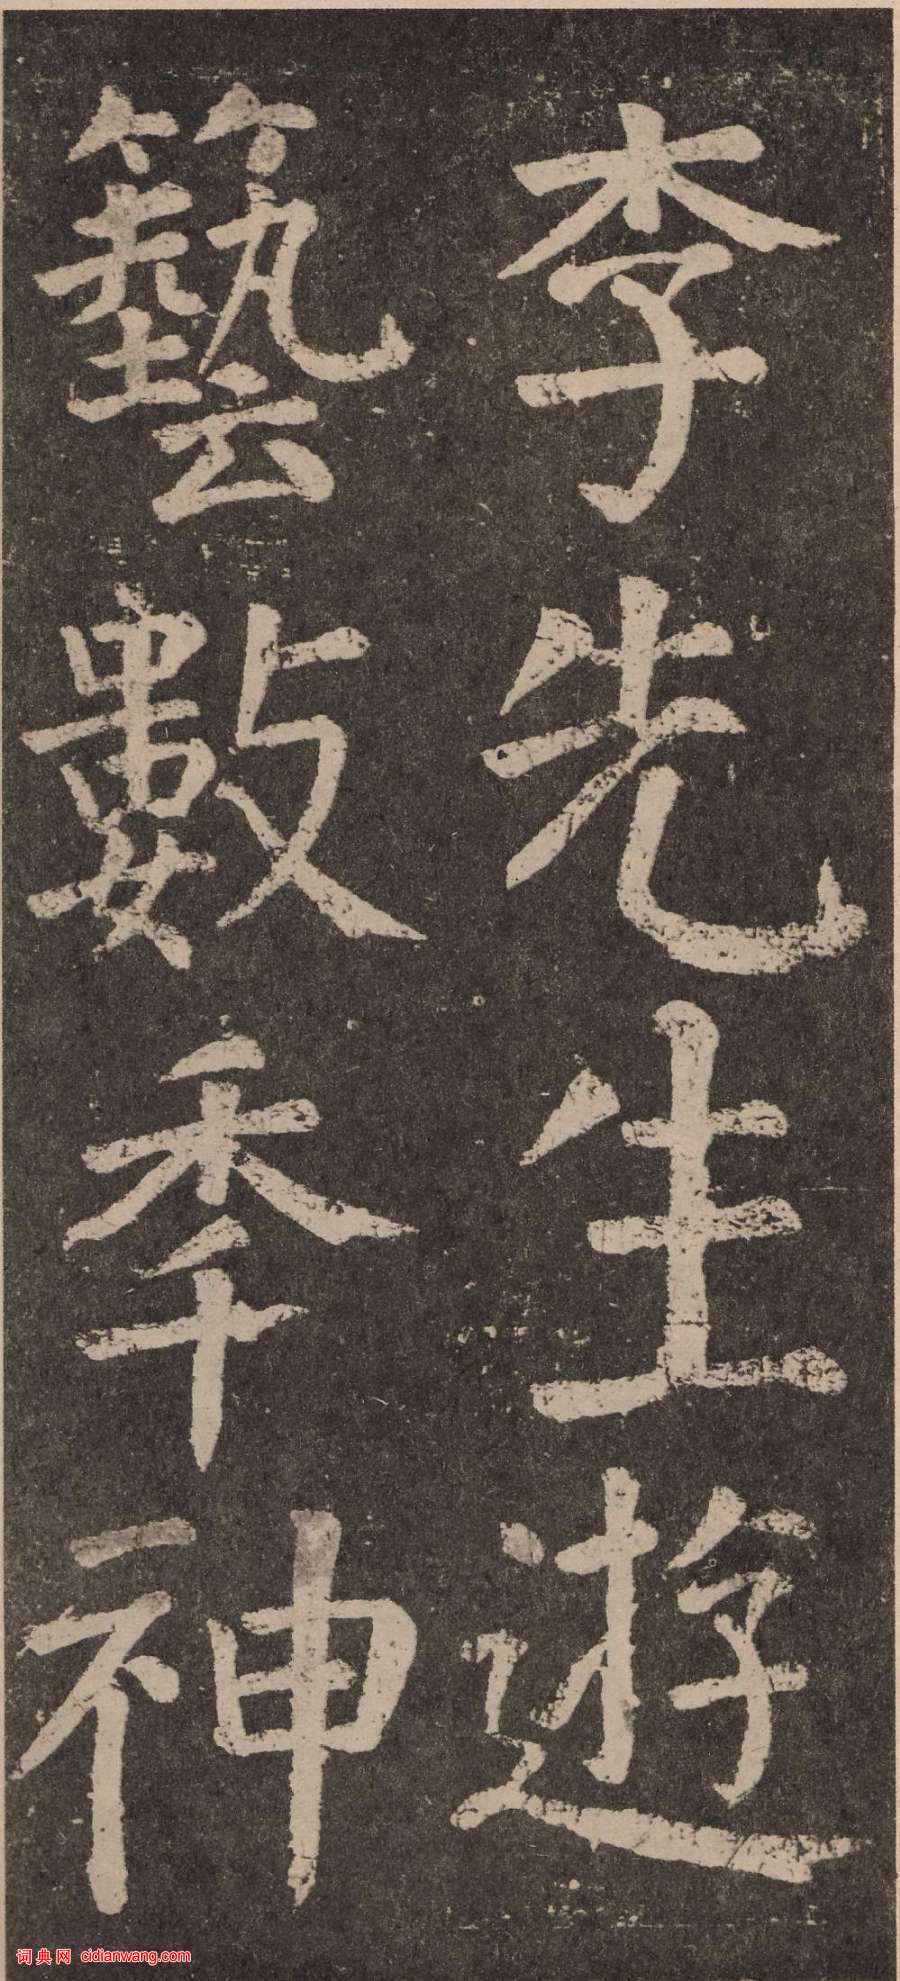 李先生遊
藝數秊神
词典网 cidianwang.com